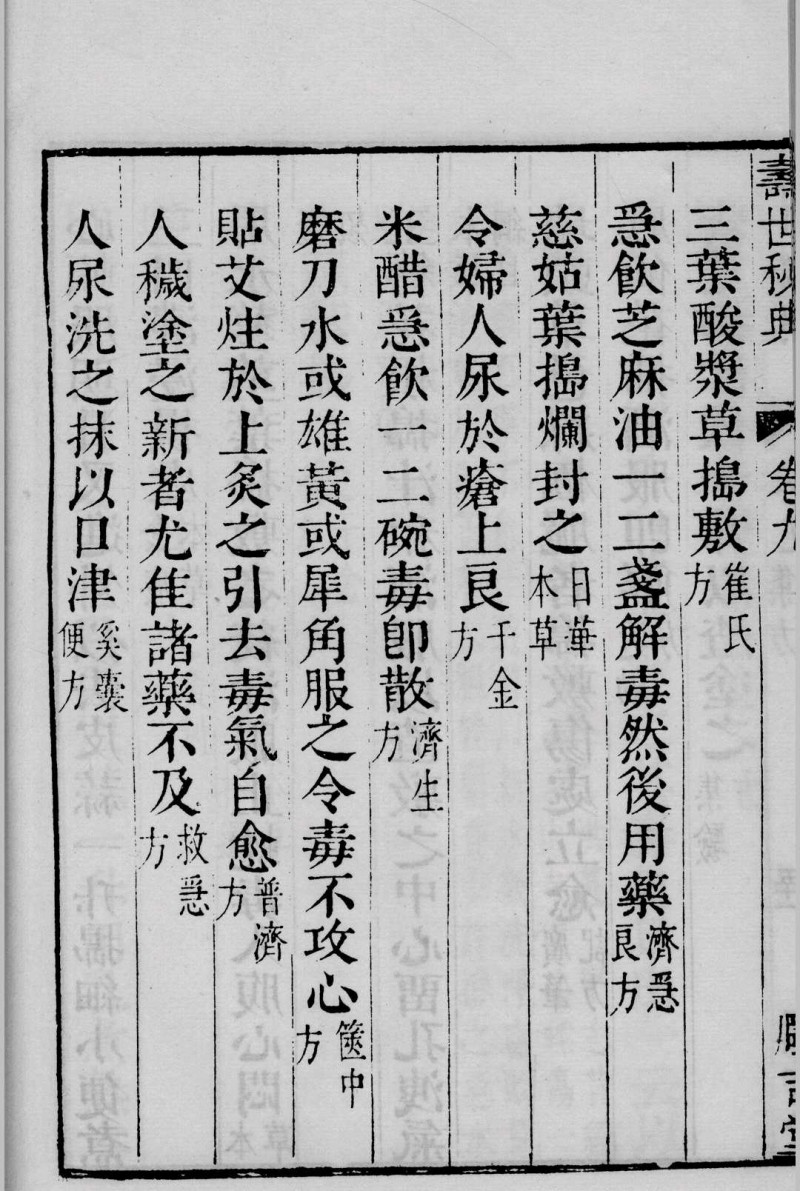 壽世秘典 卷九
三葉酸漿草搗敷崔氏方
急飲芝麻油一二盞解毒然後用藥濟急良方
慈姑葉搗爛封之日華本草
令婦人尿於瘡上良千金方
米醋急飲一二碗毒卽散濟生方
磨刀水或雄黃或犀角服之令毒不攻心篋中方
貼艾炷於上炙之引去毒氣自愈普濟方
人穢塗之新者尤佳諸藥不及救急方
人尿洗之抹以口津奚囊便方